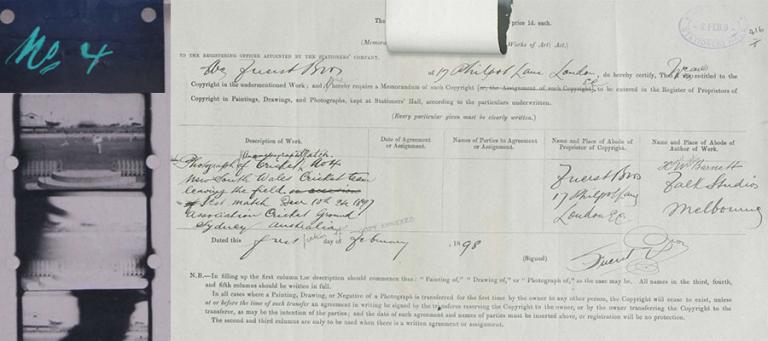 No 4
The
price 1d. each.
(Memor
Works of Art) Act.)
FEB.9
STATIONERS
416
TO THE REGISTERING OFFICER APPOINTED BY THE STATIONERS' COMPANY.
We Fuerst Bros of 17 Philpot Lane London, EC do hereby certify, That we are entitled to the
Copyright in the undermentioned Work; and hereby require a Memorandum of such Copyright [or, the Assignment of such Copyright] to be entered in the Register of Proprietors
of Copyright in Paintings, Drawings, and Photographs, kept at Stationers' Hall, according to the particulars underwritten.
(Every particular given must be clearly written.)
Description of Work.
Date of Agreement or Assignment.
Names of Parties to Agreement or Assignment.
Name and Place of Abode of Proprietor of Copyright.
Name and Place of Abode of Author of Work.
Photograph of Cricket Match No 4
New South Wales Cricket team
leaving the field
1st match Decr 10th 1897
Association Cricket Ground
Sydney Australia
Fuerst Bros
17 Philpot Lane
London E.C.
H Wr Barnett
Falk Studios
Melbourne
NOT ANNEXED
Dated this first day of February 1898
(Signed) Fuerst Bros
N.B.—In filling up the first column the description should commence thus: "Painting of," "Drawing of," or "Photograph of," as the case may be. All names in the third, fourth,
and fifth columns should be written in full.
In all cases where a Painting, Drawing, or Negative of a Photograph is transferred for the first time by the owner to any other person, the Copyright will cease to exist, unless
at or before the time of such transfer an agreement in writing be signed by the transferee reserving the Copyright to the owner, or by the owner transferring the Copyright to the
transferee, as may be the intention of the parties; and the date of such agreement and names of parties must be inserted above, or registration will be no protection.
The second and third columns are only to be used when there is a written agreement or assignment.